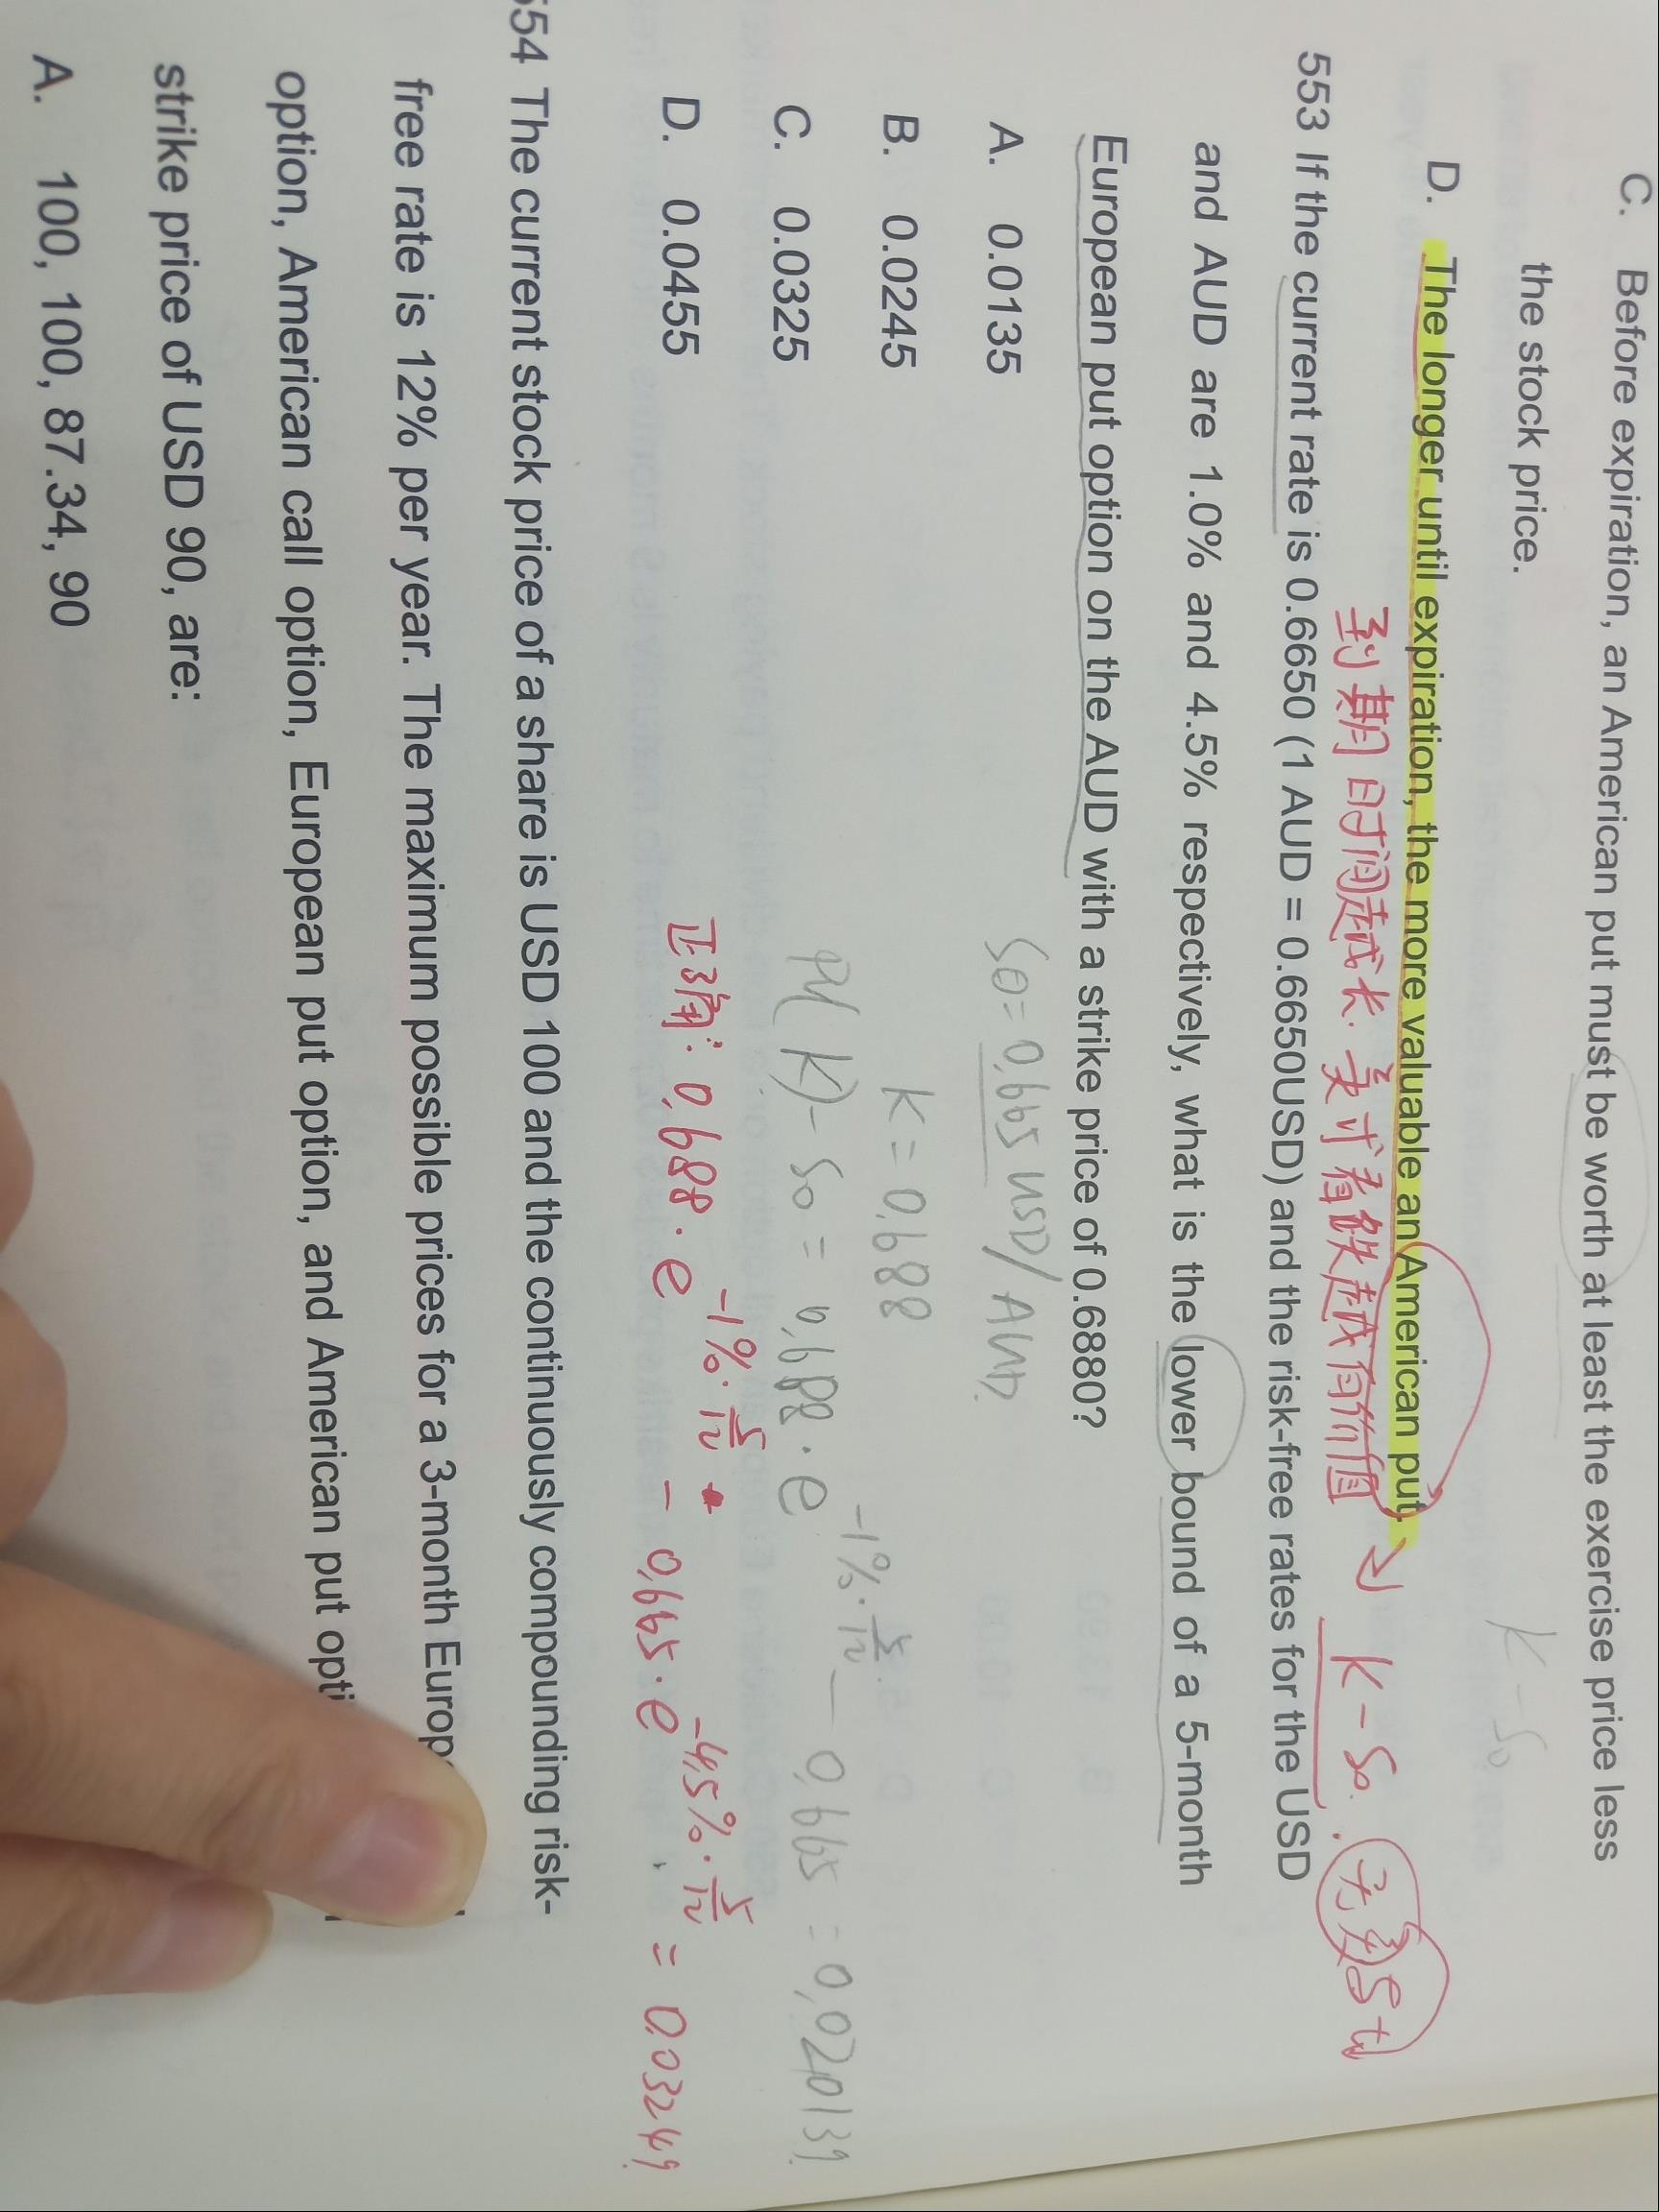 C. Before expiration, an American put must be worth at least the exercise price less
the stock price.
K - S0
D. The longer until expiration, the more valuable an American put. → K - S0.
到期时间越长.美式看跌越有价值
553 If the current rate is 0.6650 (1 AUD = 0.6650USD) and the risk-free rates for the USD
and AUD are 1.0% and 4.5% respectively, what is the lower bound of a 5-month
European put option on the AUD with a strike price of 0.6880?
A. 0.0135
S0 = 0.665 USD/AUD.
B. 0.0245
K = 0.688
C. 0.0325
PV(K) - S0 = 0.688 · e^-1%·5/12 - 0.665 = 0.020139.
D. 0.0455
正确: 0.688 · e^-1%·5/12 - 0.665 · e^-4.5%·5/12 = 0.03249.
554 The current stock price of a share is USD 100 and the continuously compounding risk-
free rate is 12% per year. The maximum possible prices for a 3-month Europ
option, American call option, European put option, and American put opti
strike price of USD 90, are:
A. 100, 100, 87.34, 90